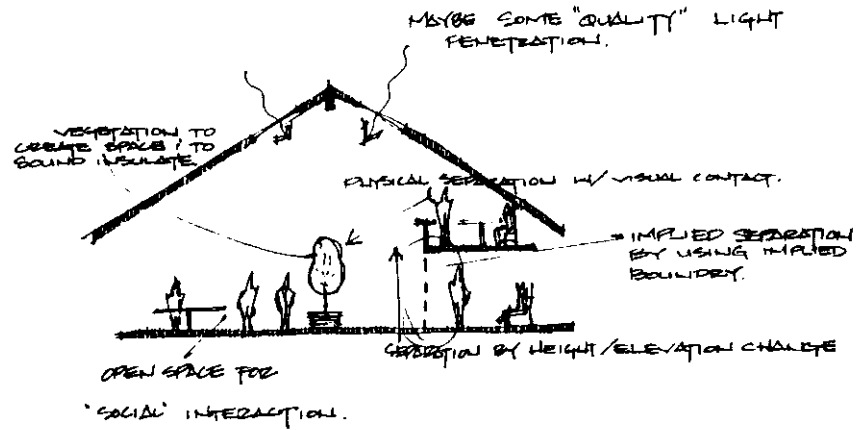 MAYBE SOME "QUALITY" LIGHT
PENETRATION.
VEGETATION TO
CREATE SPACE & TO
SOUND INSULATE
PHYSICAL SEPARATION W/ VISUAL CONTACT.
IMPLIED SEPARATION
BY USING IMPLIED
BOUNDRY.
SEPARATION BY HEIGHT/ELEVATION CHANGE
OPEN SPACE FOR
'SOCIAL' INTERACTION.